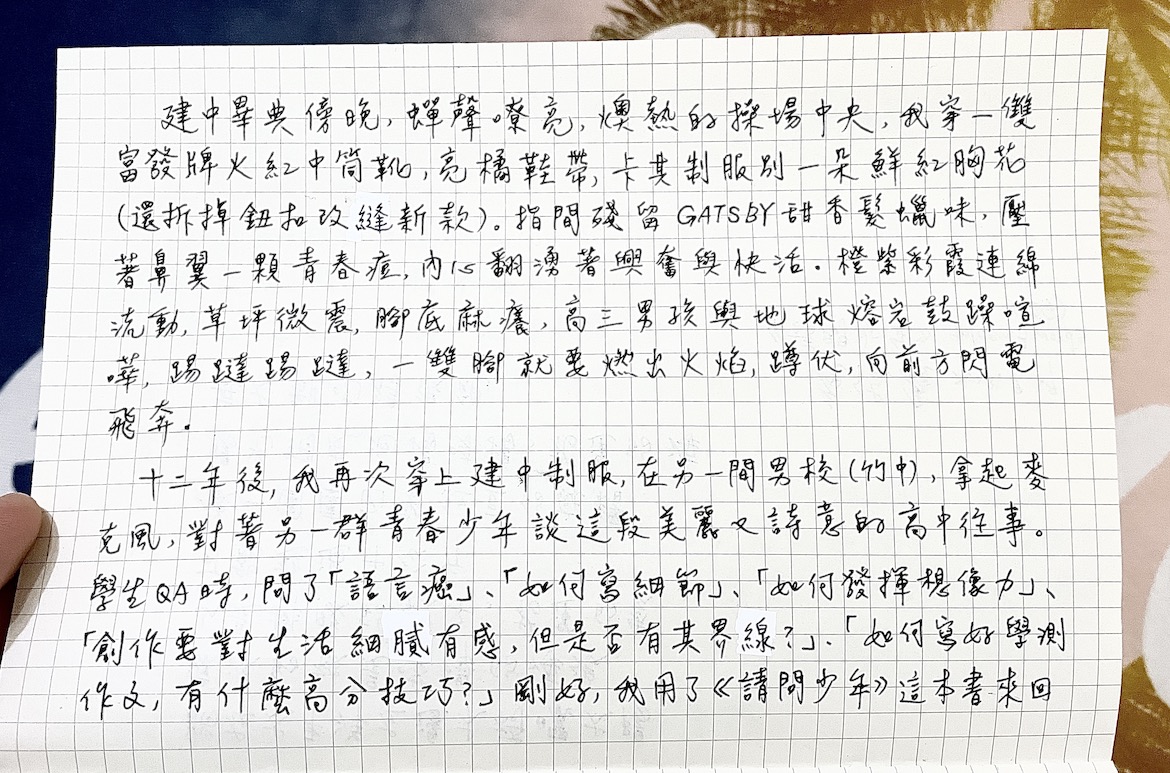 建中畢典傍晚，蟬聲嘹亮，燠熱的操場中央，我穿一雙
富發牌火紅中筒靴，亮橘鞋帶，卡其制服別一朵鮮紅胸花
(還拆掉鈕扣改縫新款)。指間殘留GATSBY甜香髮蠟味，壓
著鼻翼一顆青春痘，內心翻湧著興奮與快活。橙紫彩霞連綿
流動，草坪微震，腳底麻癢，高三男孩與地球熔岩鼓躁喧
嘩，踢躂踢躂，一雙腳就要燃出火焰，蹲伏，向前方閃電
飛奔。
十二年後，我再次穿上建中制服，在另一間男校(竹中)，拿起麥
克風，對著另一群青春少年談這段美麗又詩意的高中往事。
學生QA時，問了「語言癌」、「如何寫細節」、「如何發揮想像力」、
「創作要對生活細膩有感，但是否有其界線？」、「如何寫好學測
作文，有什麼高分技巧？」剛好，我用了《請問少年》這本書來回